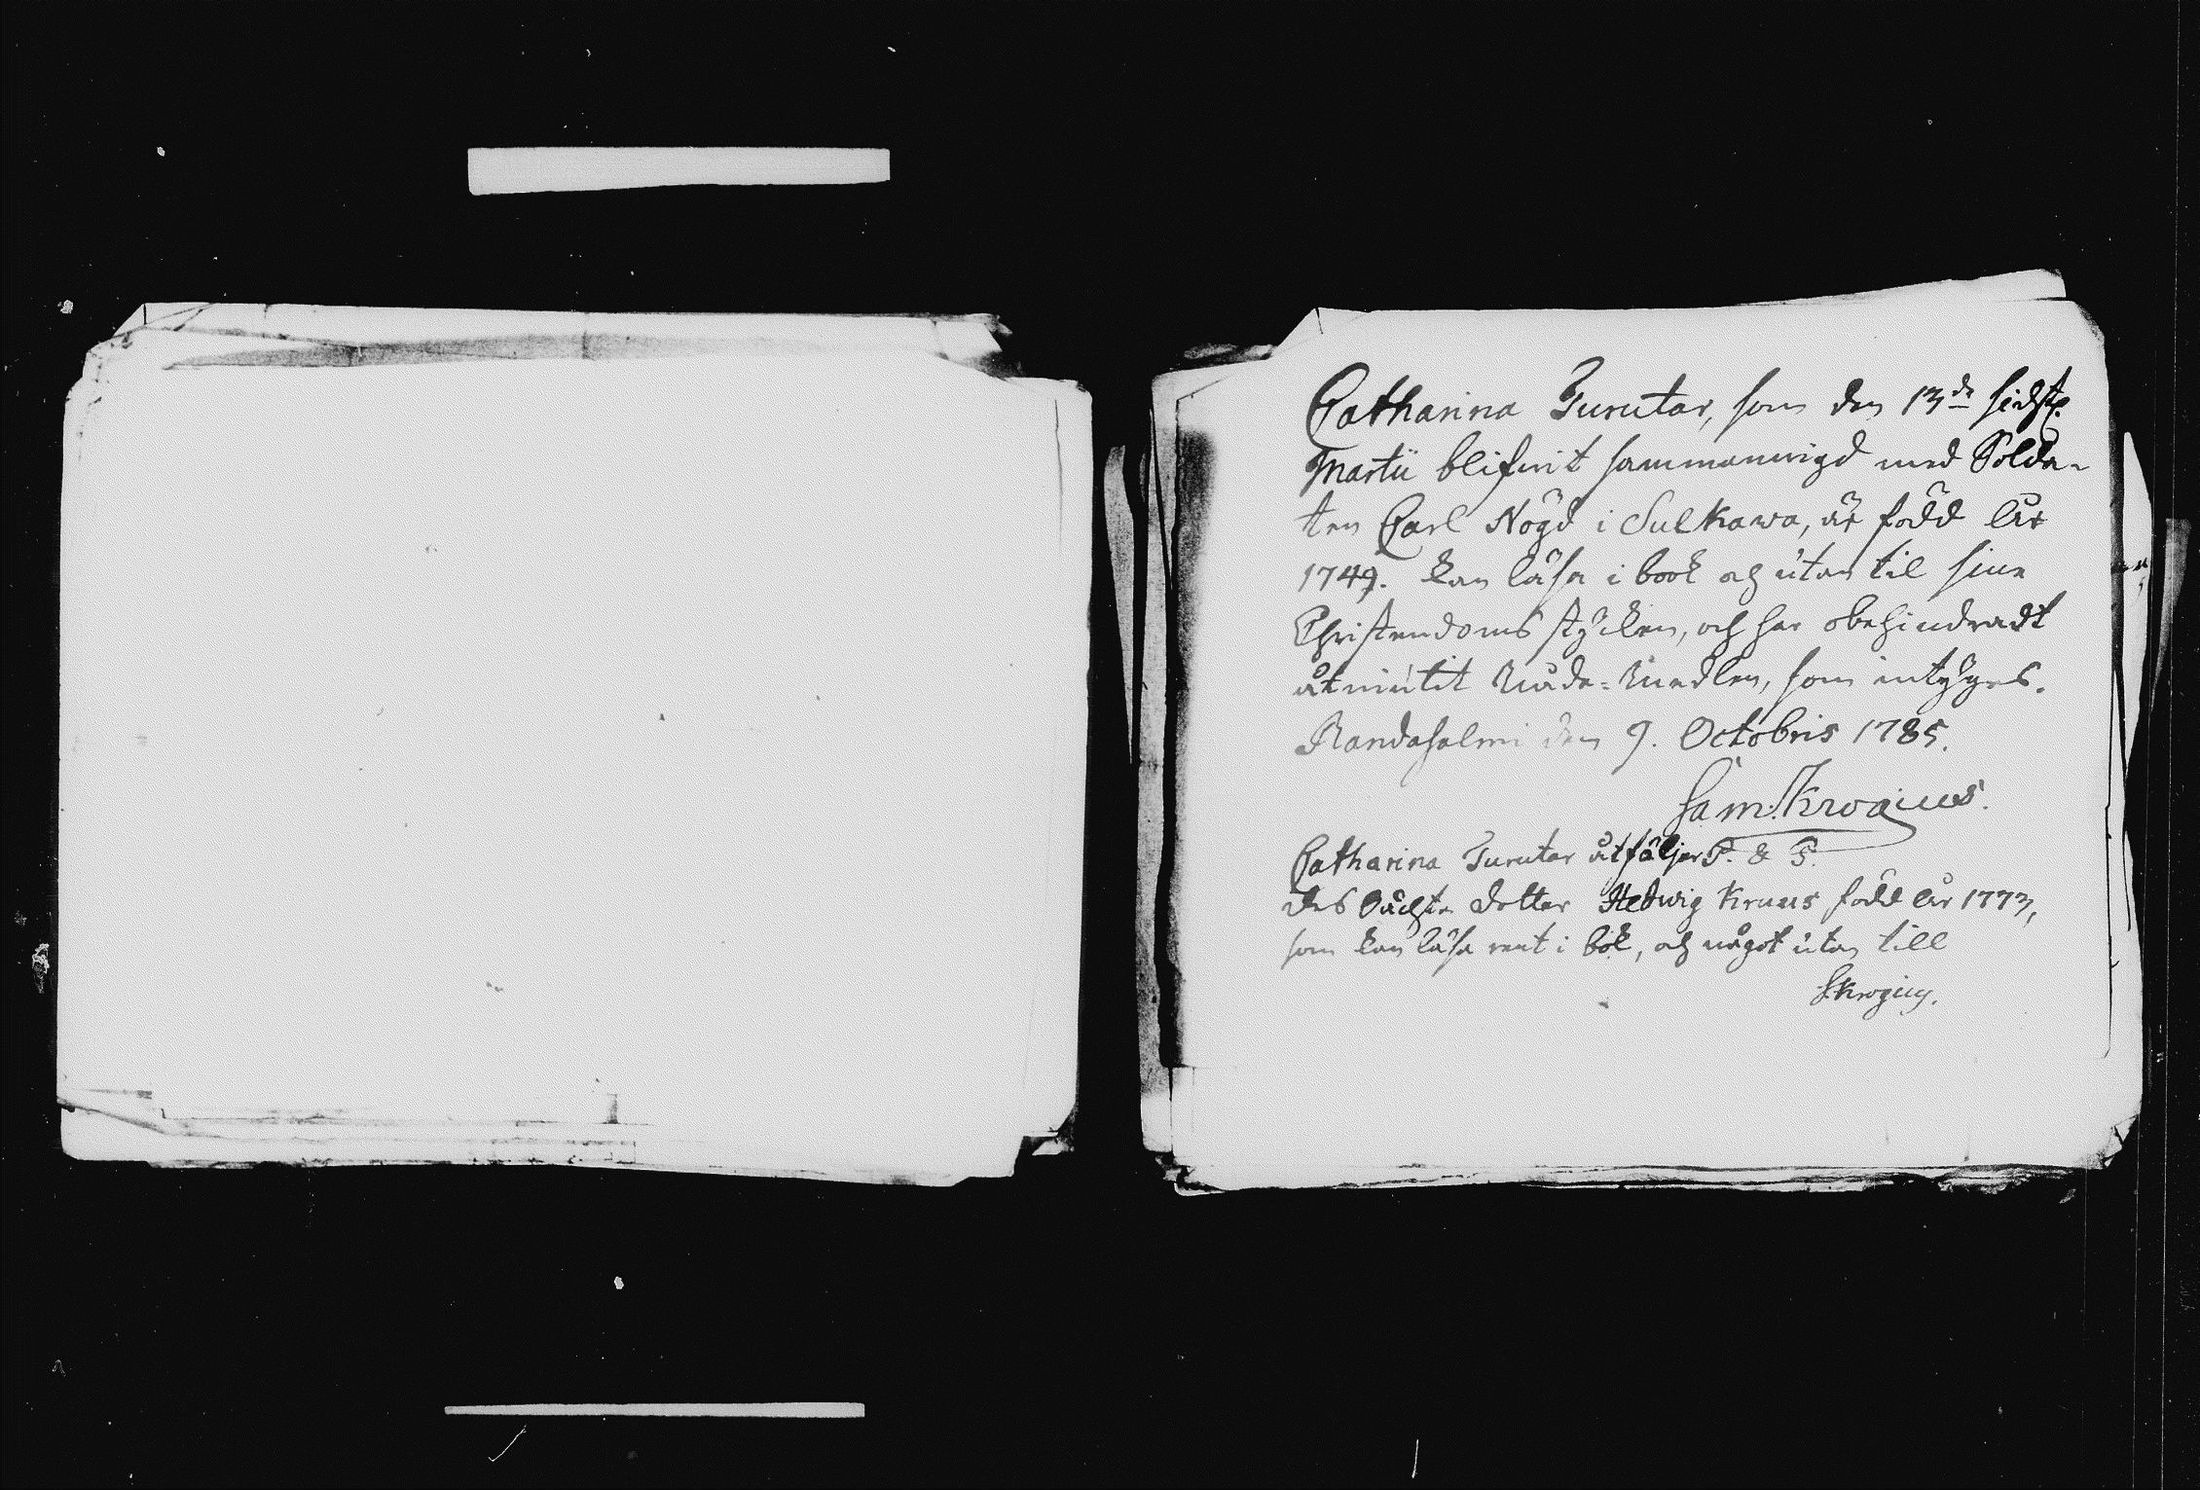 Catharina Turutar, som den 13de sidstl.
Martii blifwit sammanwigd med Solda-
ten Carl Nögd i Sulkawa, är född år
1749. kan läsa i book och utan til sine
Christendoms stycken, och har obehindradt
åtniutit Nåde-Medlen, som intyges.
Randasalmi den 9. Octobris 1785.
Sam. Krogius.
Catharina Turutar åtföljer
des dotter Hedwig Kruus född år 1773,
som kan läsa rent i bok, och något utan till
S. Krogius.